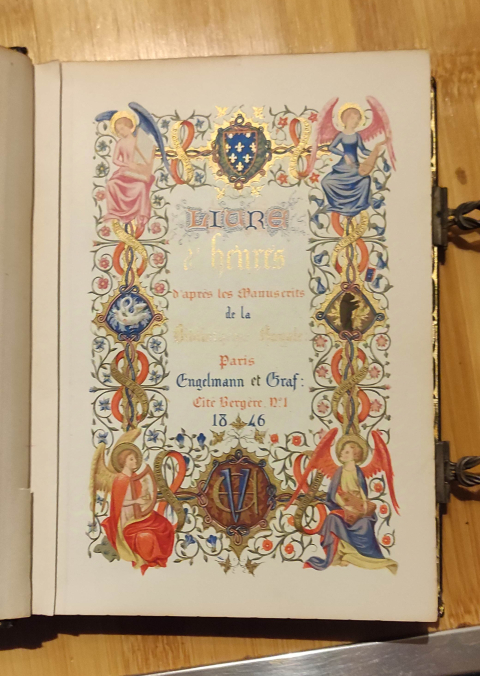 LIVRE
d'heures
d'après les Manuscrits
de la
Bibliothèque Royale
Paris
Engelmann et Graf:
Cité Bergère, Nº1
1846